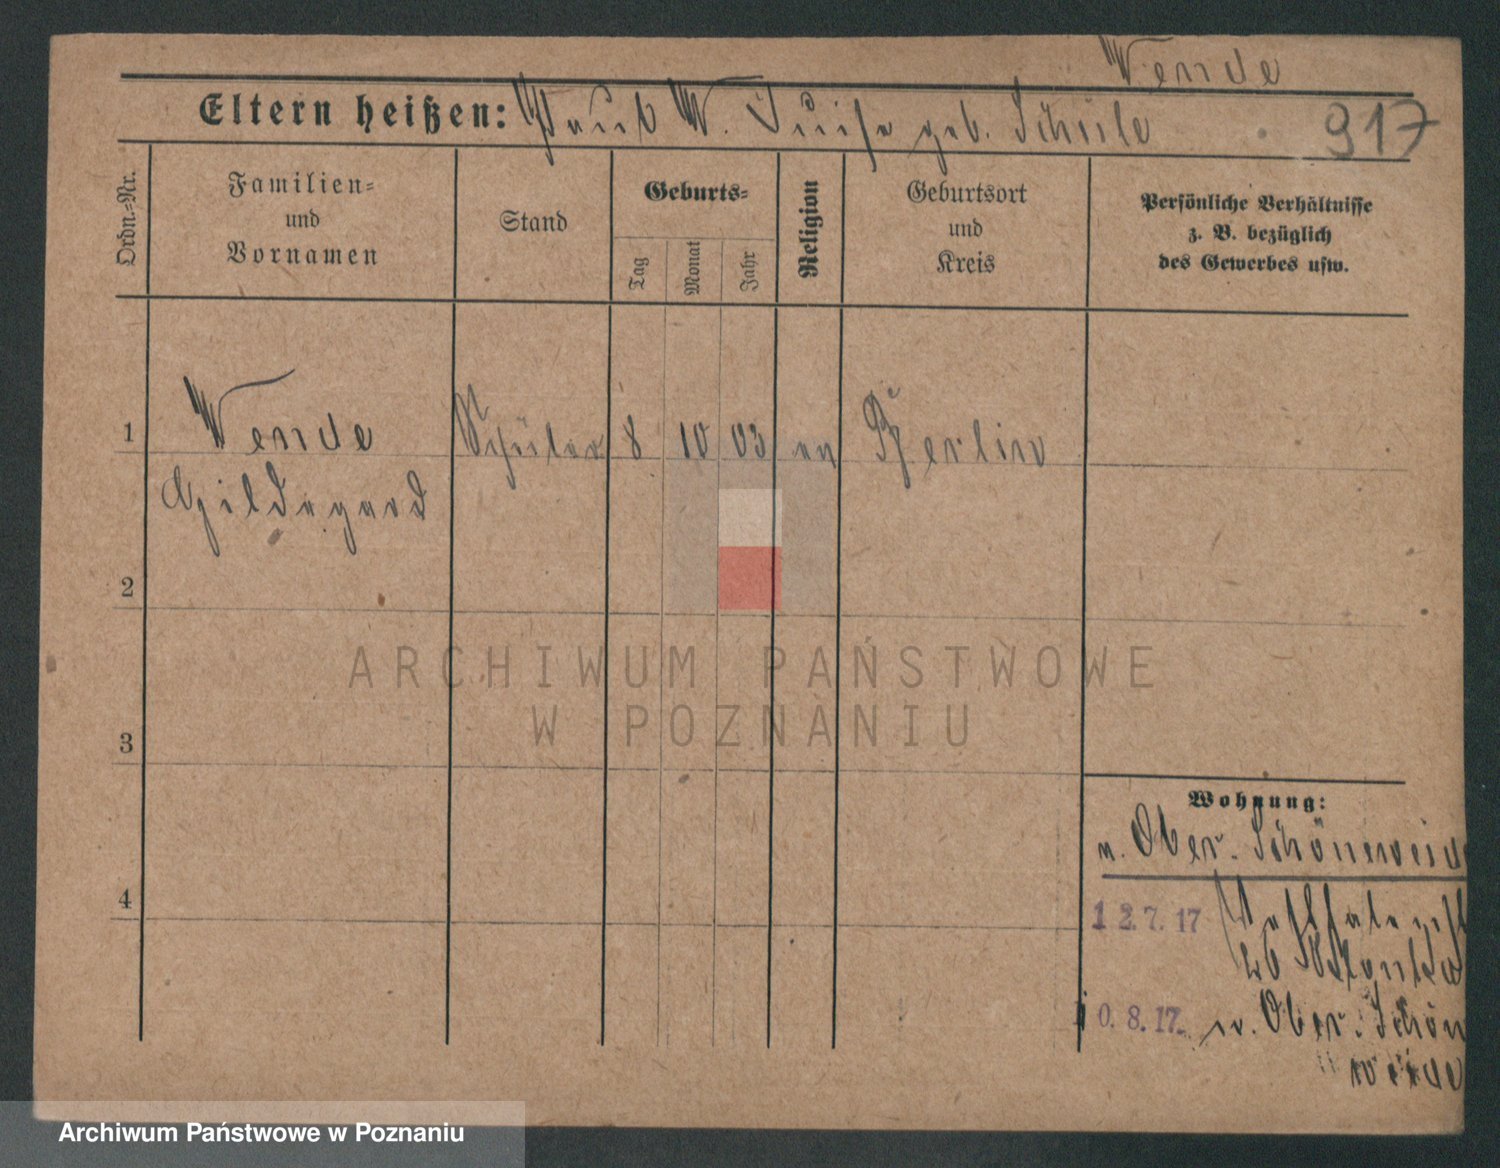 Wende
Eltern heißen: Paul W. Luise geb. Schüle
917
Ordn.-Nr.
Familien-
und
Vornamen
Stand
Geburts-
Tag
Monat
Jahr
Religion
Geburtsort
und
Kreis
Persönliche Verhältnisse
z. B. bezüglich
des Gewerbes usw.
1 Wende Schüler 8 10 03 ev Berlin
Hildegard
2
ARCHIWUM PAŃSTWOWE
W POZNANIU
3
Wohnung:
n. Ober-Schöneweide
4
12.7.17
26
10.8.17. n. Ober-Schön
weide
Archiwum Państwowe w Poznaniu